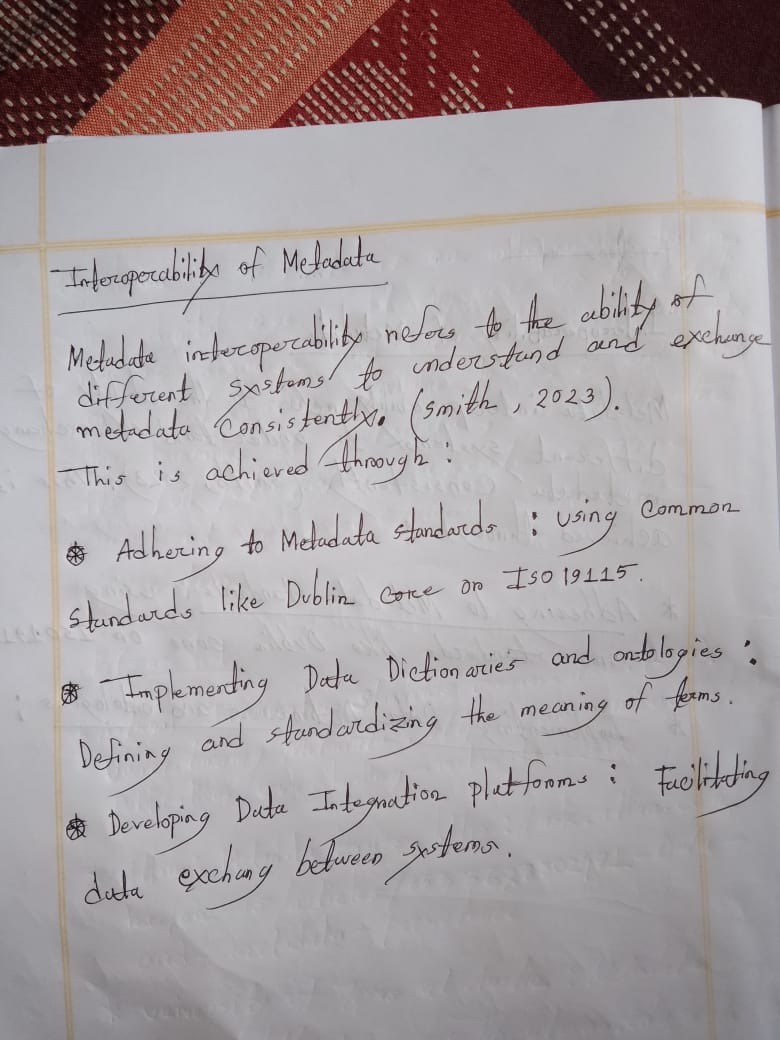 Interoperability of Metadata
Metadata interoperability refers to the ability of
different systems to understand and exchange
metadata Consistently. (Smith, 2023).
This is achieved through :
* Adhering to Metadata standards : using Common
standards like Dublin core or ISO 19115.
* Implementing Data Dictionaries and ontologies :
Defining and standardizing the meaning of terms.
* Developing Data Integration platforms : Facilitating
data exchang between systems.